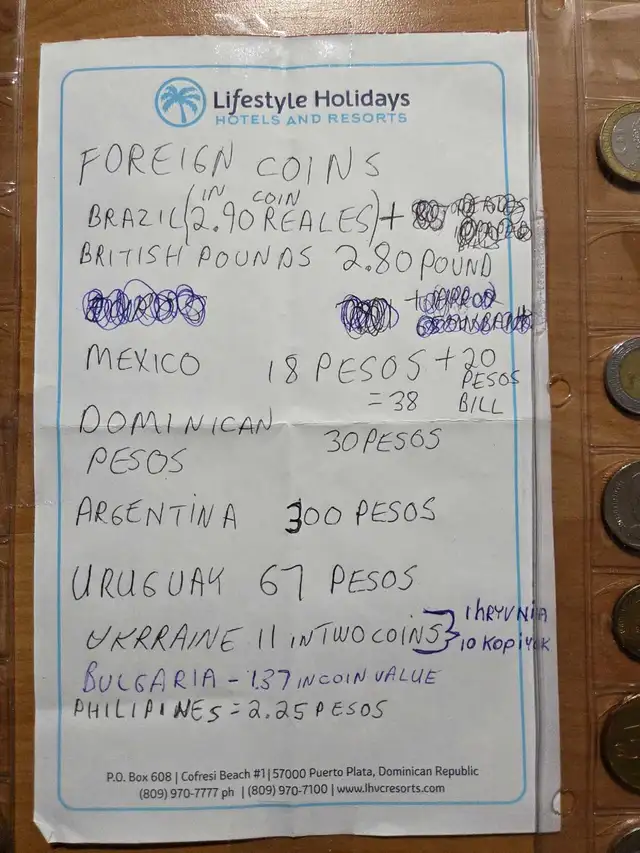 Lifestyle Holidays
HOTELS AND RESORTS
FOREIGN COINS
BRAZIL (2.90 REALES) IN COIN +
BRITISH POUNDS 2.80 POUND
MEXICO 18 PESOS + 20 PESOS BILL
= 38
DOMINICAN PESOS 30 PESOS
ARGENTINA 300 PESOS
URUGUAY 67 PESOS
UKRRAINE 11 IN TWO COINS } 1 hRYVNiA
10 KOPiYOK
BULGARIA - 1.37 IN COIN VALUE
PHILIPINES = 2.25 PESOS
P.O. Box 608 | Cofresi Beach #1 | 57000 Puerto Plata, Dominican Republic
(809) 970-7777 ph | (809) 970-7100 | www.lhvcresorts.com